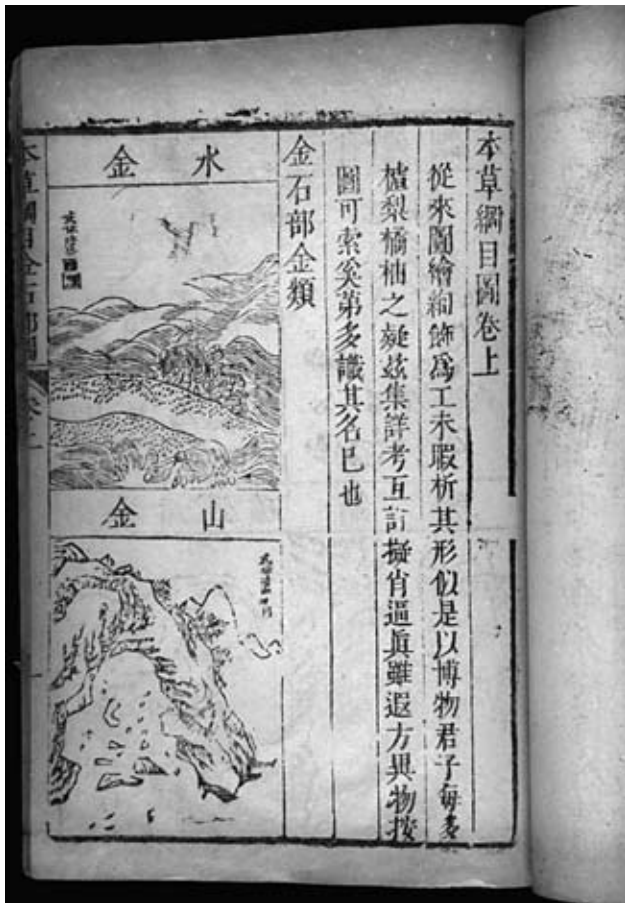 本草綱目圖卷上
從來圖繪絢飾爲工未暇析其形似是以博物君子每多
樝梨橘柚之疑玆集詳考互訂擬肖逼眞雖遐方異物按
圖可索奚第多識其名已也
金石部金類
水金
山金
本草綱目金石部圖 卷上